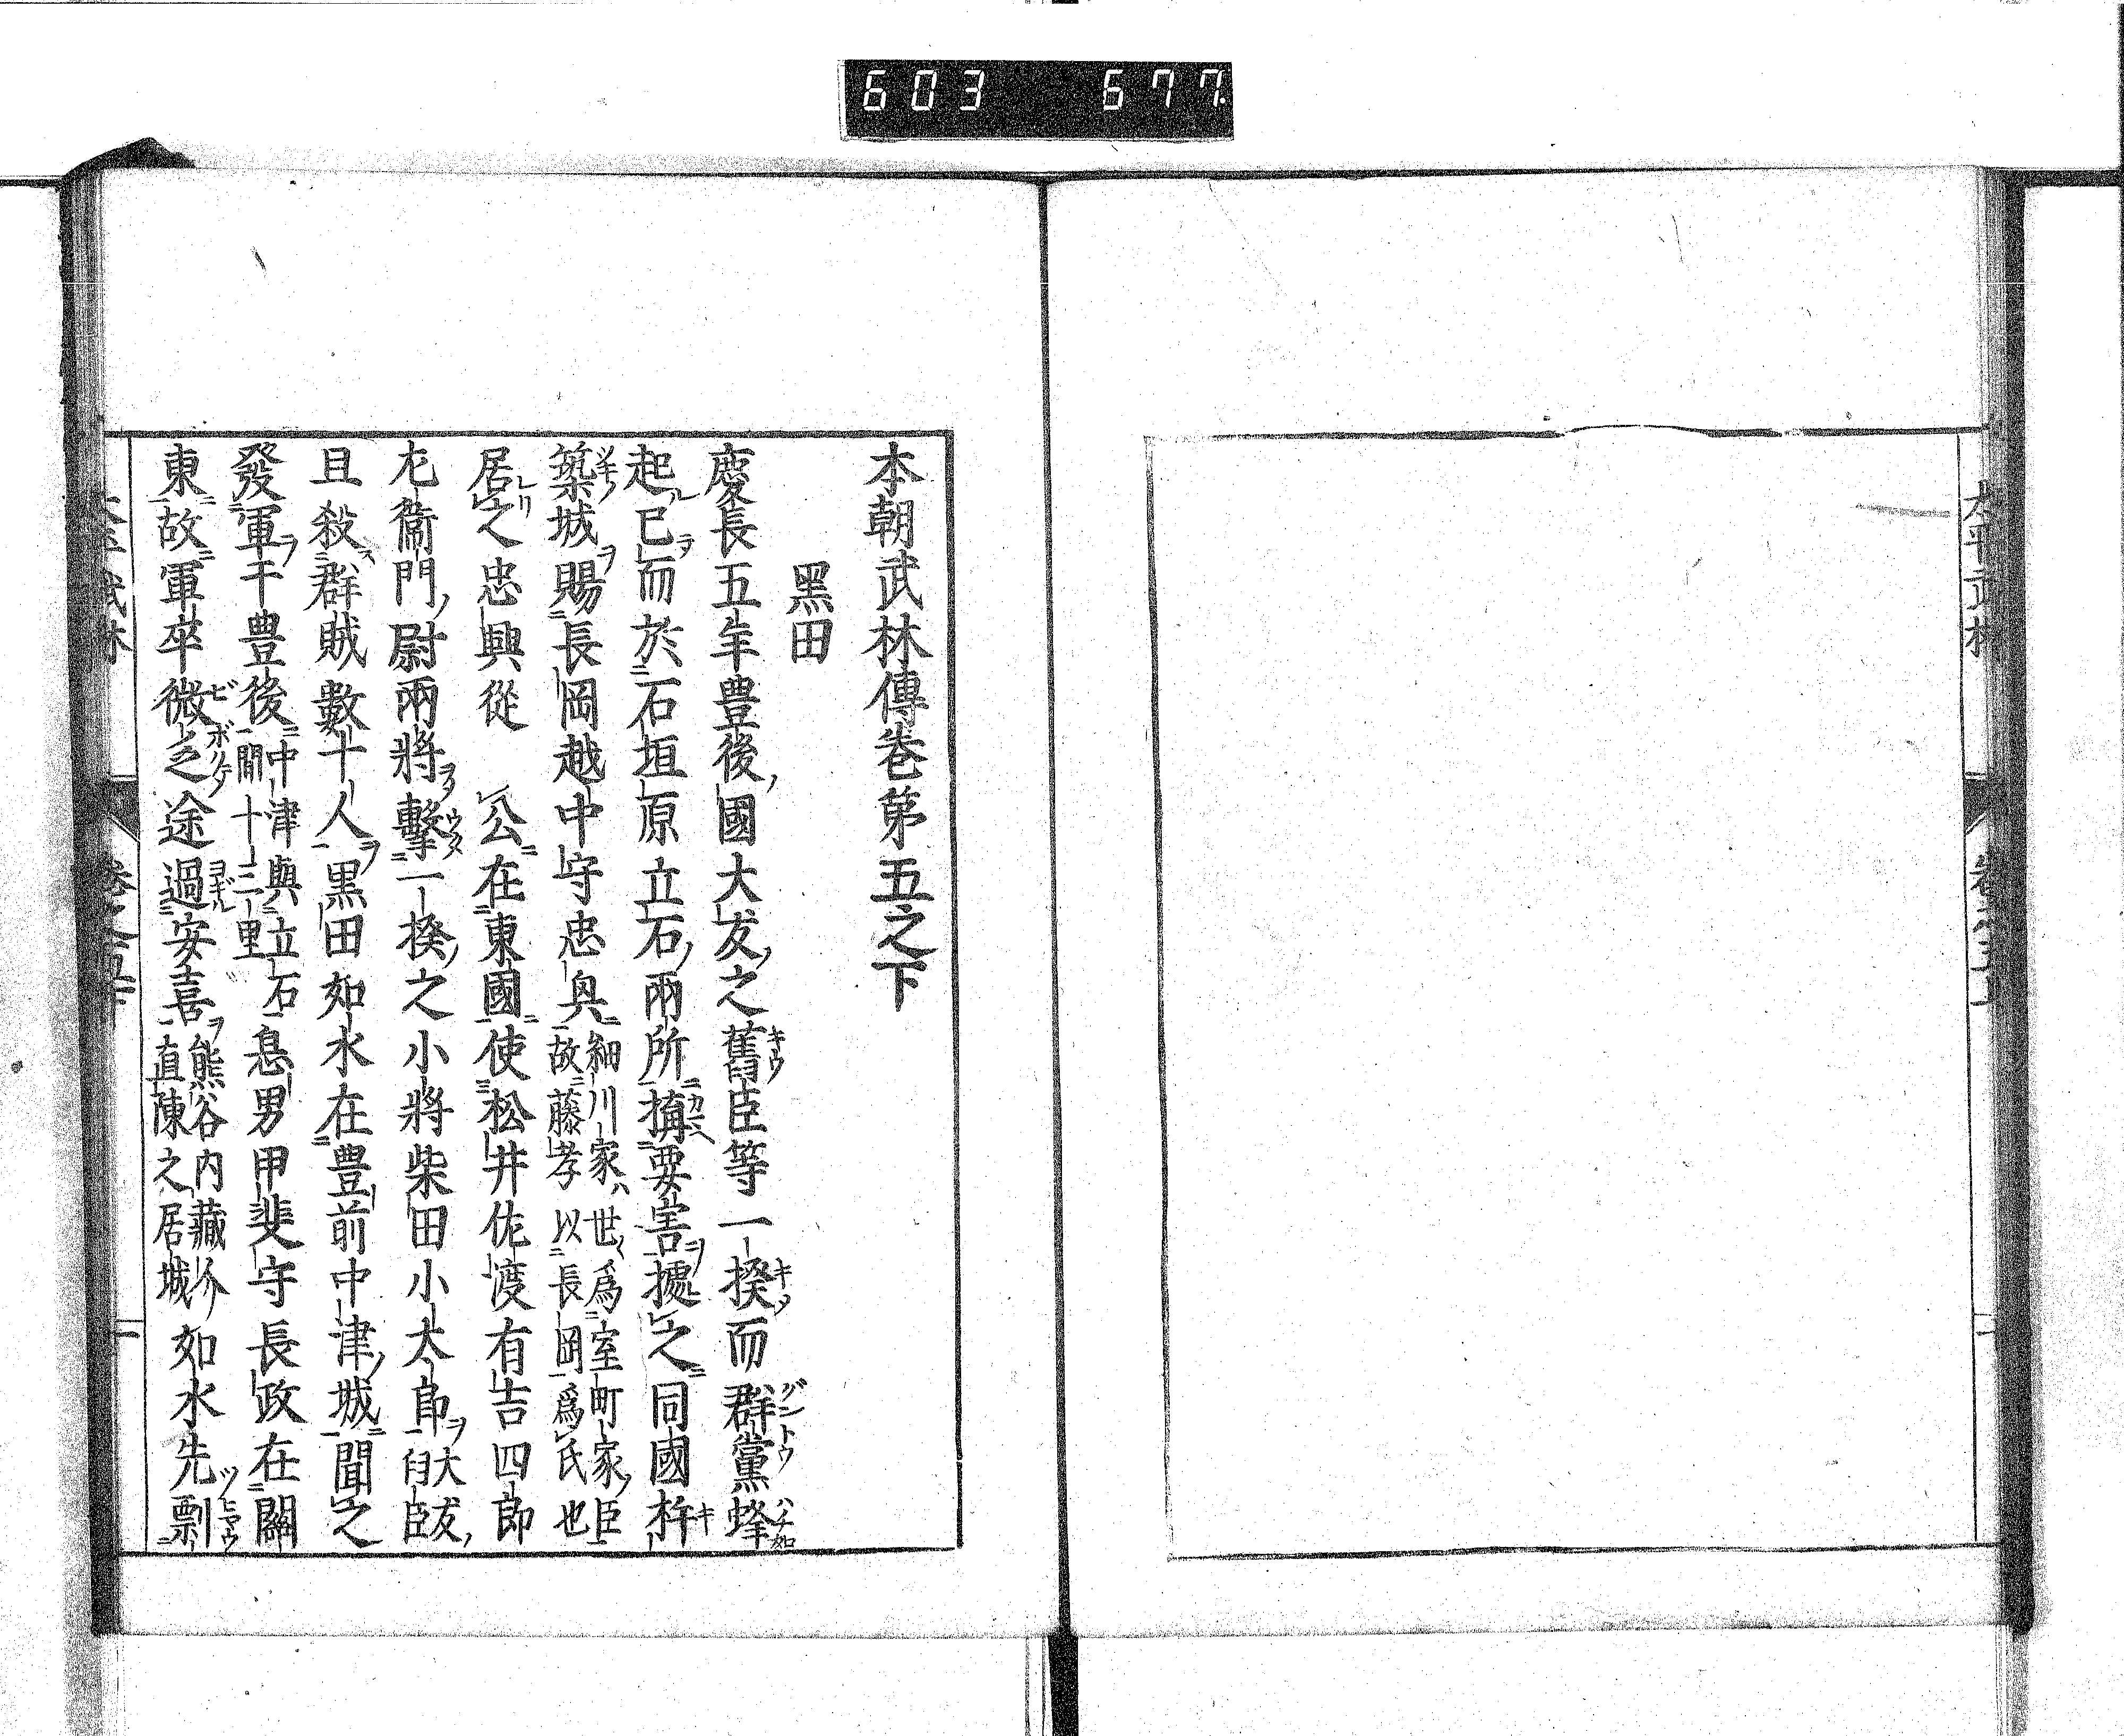 603 677
本朝武林傳巻第五之下
黑田
慶長五年豊後國大友之舊臣等一揆而群黨蜂
起已而於石垣原立石兩所搆要害據之同國杵
築城賜長岡越中守忠興細川家世〻爲室町家臣故藤孝以長岡爲氏也
居之忠興從　公在東國使松井佐渡有吉四郎
左衞門尉兩將擊一揆之小將柴田小太郎大友舊臣
且殺群賊數十人黒田如水在豊前中津城聞之
發軍于豊後中津與立石間十三里息男甲斐守長政在關
東故軍卒微乏途過安喜熊谷内藏介直陳之居城如水先剽